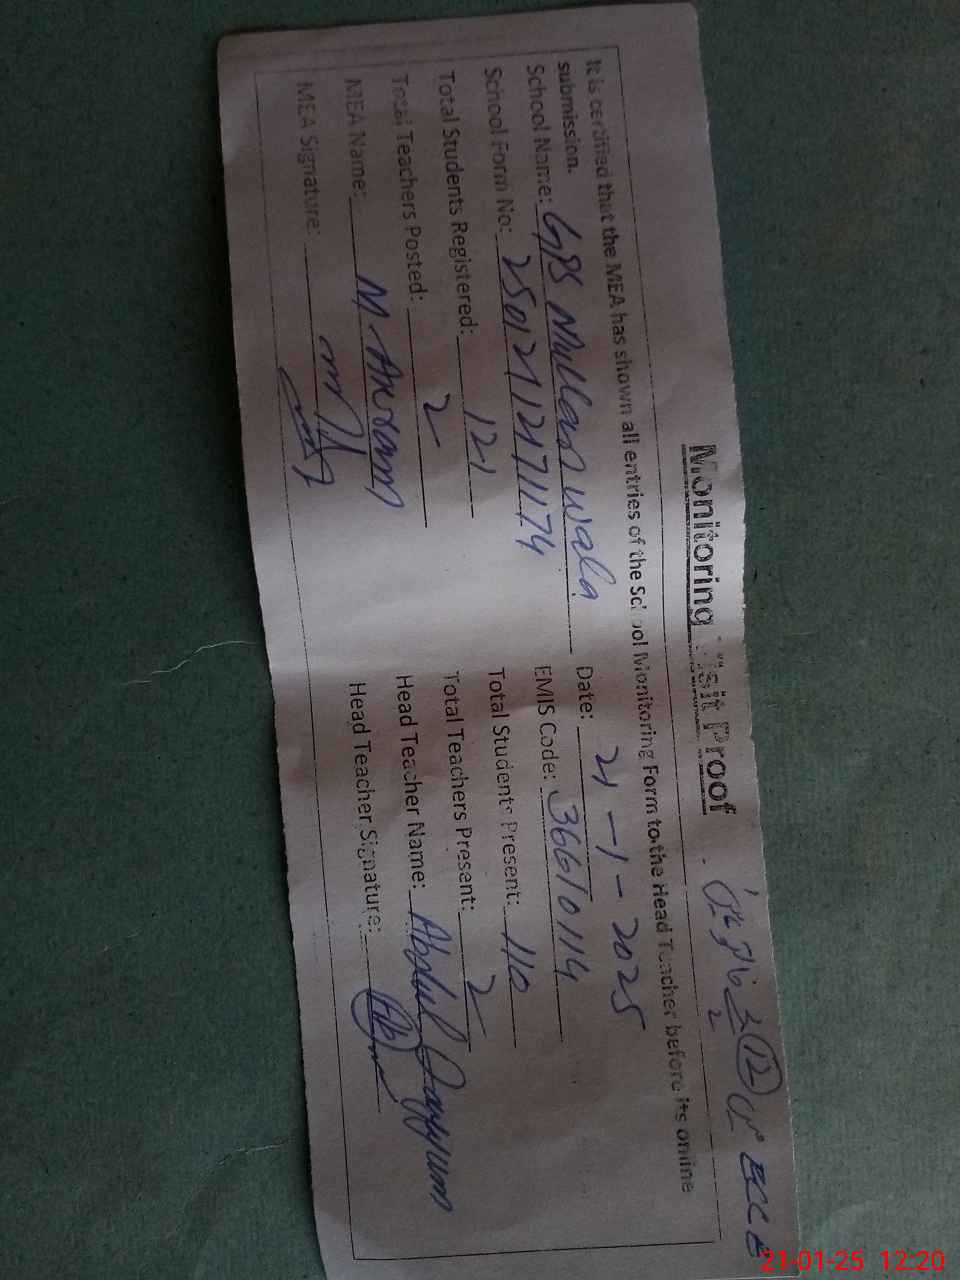 Monitoring Visit Proof
ECCE
It is certified that the MEA has shown all entries of the School Monitoring Form to the Head Teacher before its online
submission.
Date: 21-1-2025
School Name: GPS Mullan wala
EMIS Code: 36610114
School Form No: 2501211217 1174
Total Students Present: 110
Total Students Registered: 121
Total Teachers Present: 2
Total Teachers Posted: 2
Head Teacher Name: Abdul Qayyum
MEA Name: M. Akram
Head Teacher Signature:
MEA Signature:
21-01-25 12:20